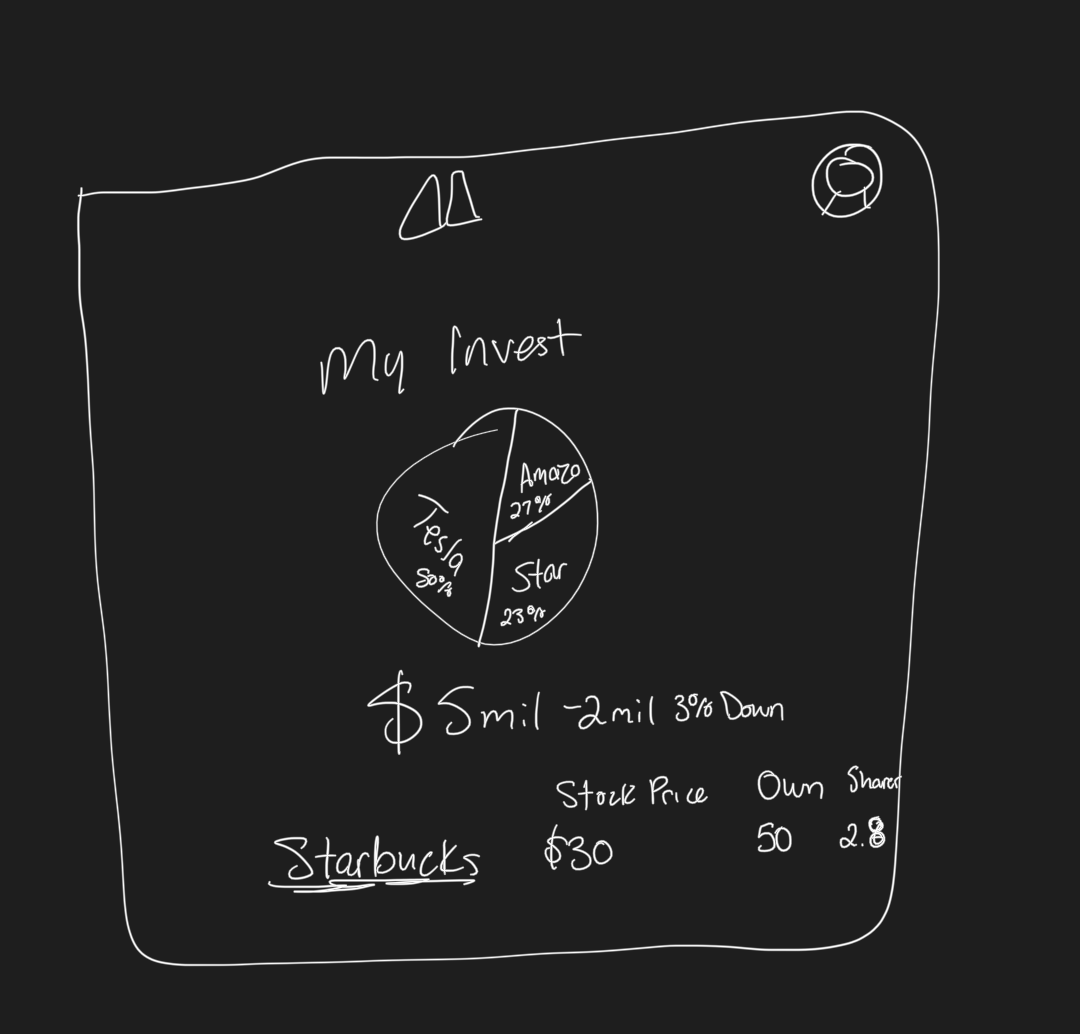 My Invest
Amazo
27%
Tesla
50%
Star
23%
$5mil -2mil 3% Down
Stock Price Own Shares
Starbucks $30 50 2.8